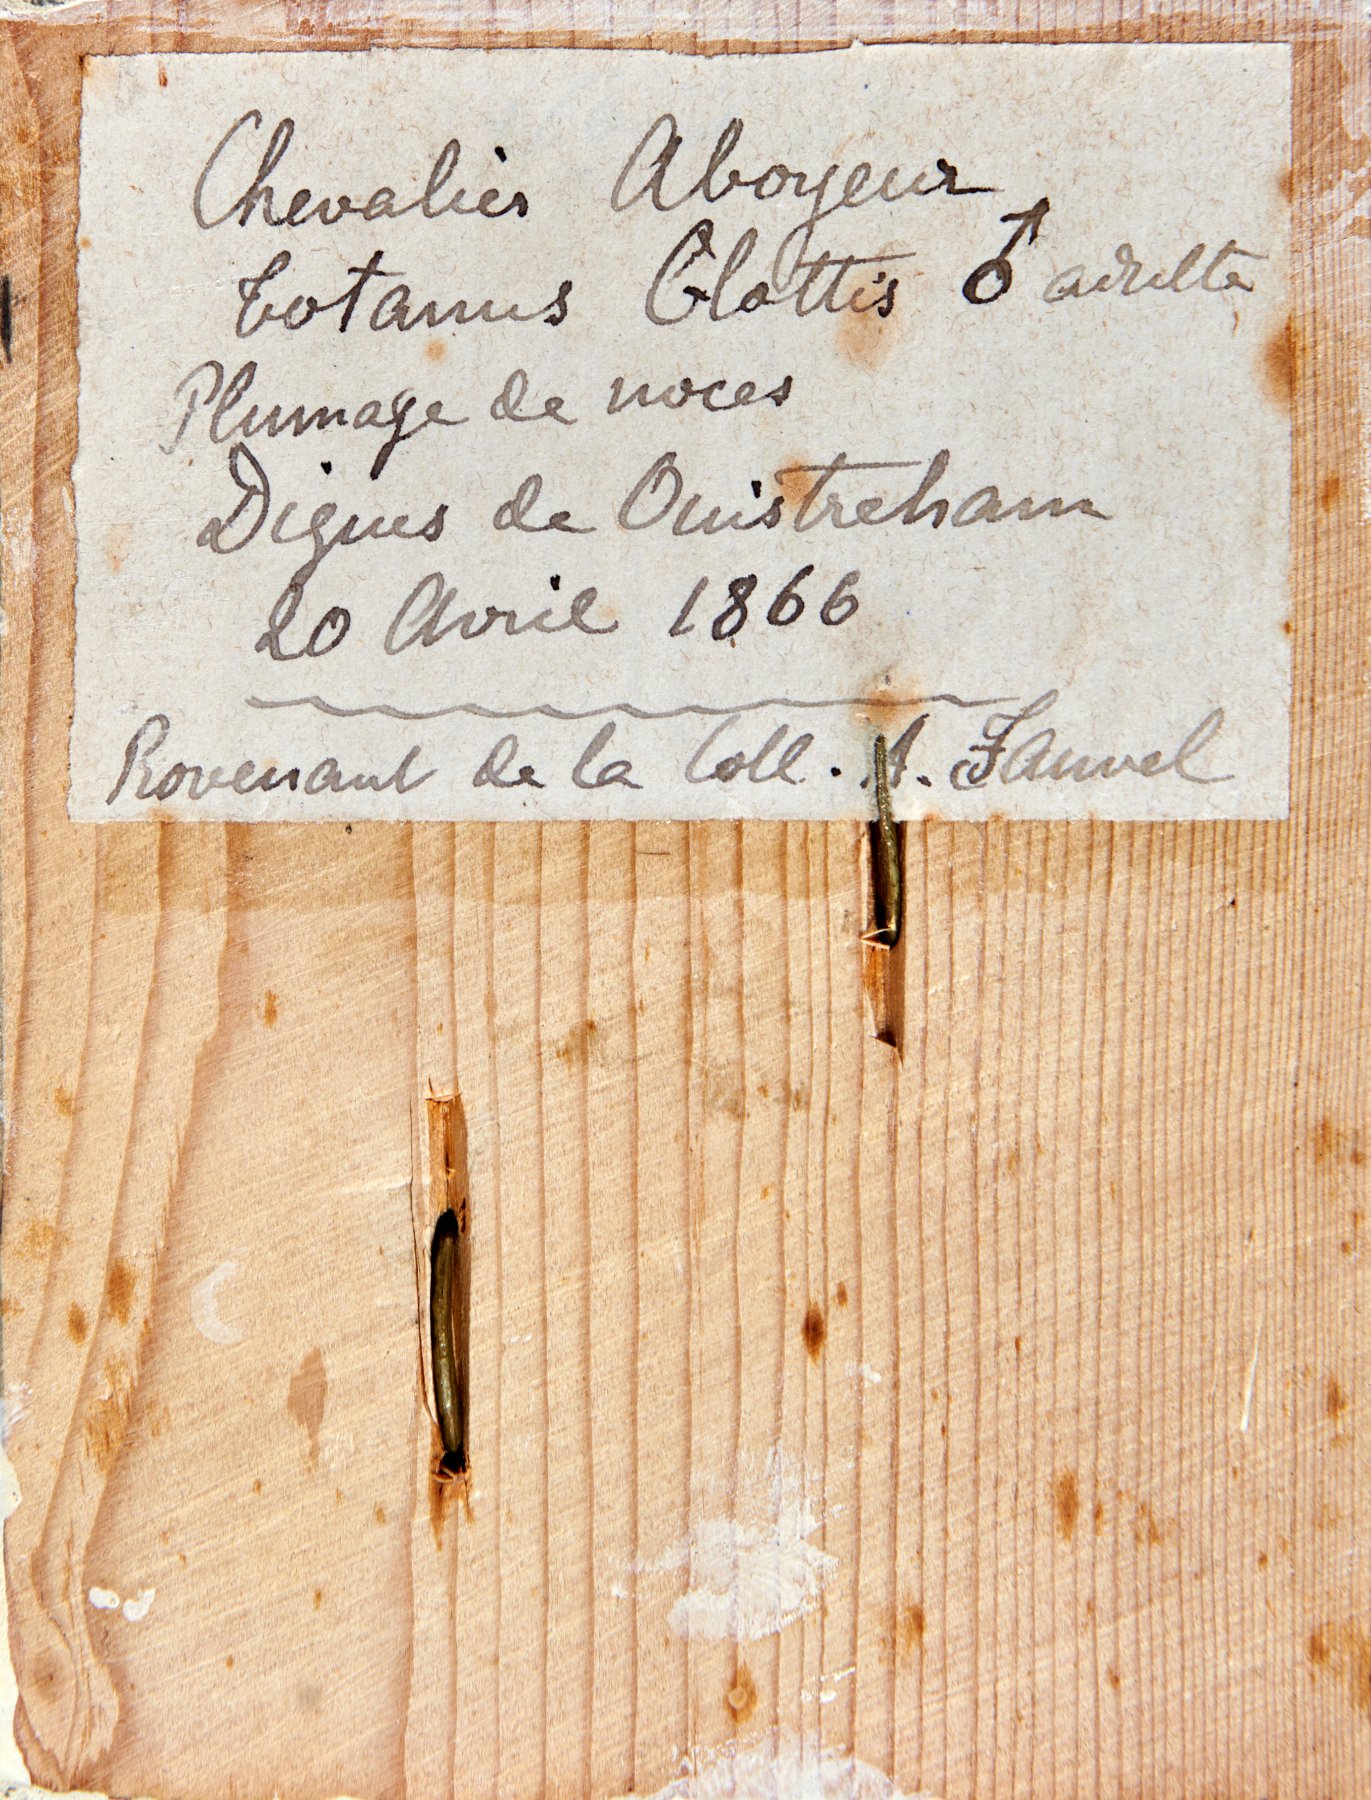 Chevalier Aboyeur
Totanus Glottis ♂ adulte
Plumage de noces
Digues de Ouistreham
20 Avril 1866
Provenant de la Coll. A. Fauvel